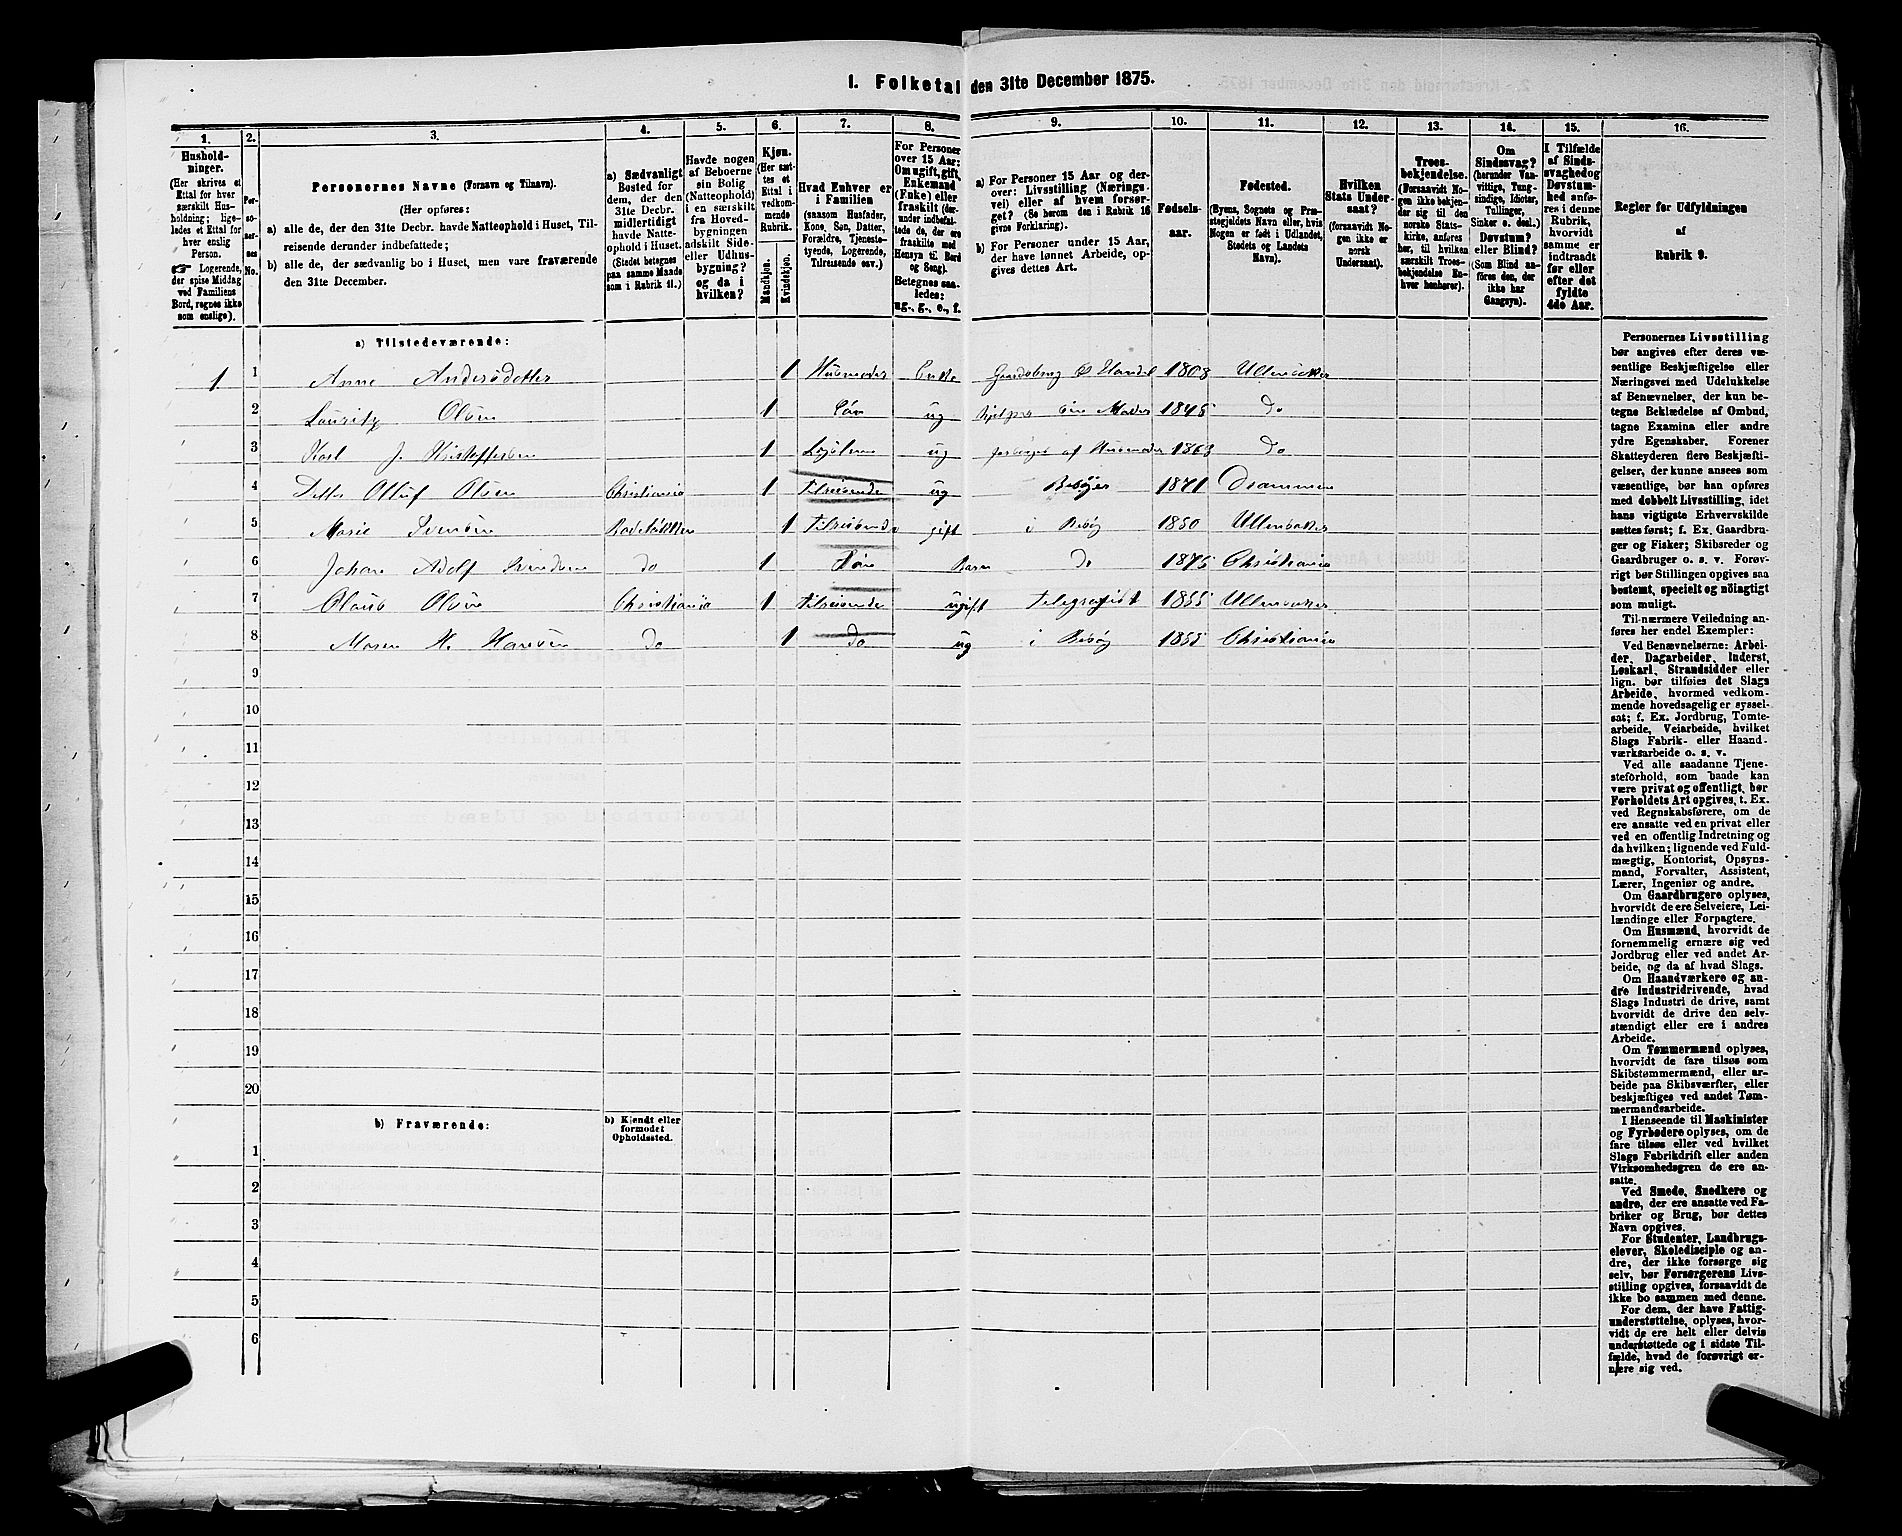 1. Folketal den 31te December 1875.
1. 2. 3. 4. 5. 6. 7. 8. 9. 10. 11. 12. 13. 14. 15. 16.
Hushold-
ninger.
(Her skrives et
Ettal for hver
særskilt Hus-
holdning; lige-
ledes et Ettal for
hver enslig
Person.
☞ Logerende,
der spise Middag
ved Familiens
Bord, regnes ikke
som enslige).
Per-
so-
ner-
nes
No.
Personernes Navne (Fornavn og Tilnavn).
(Her opføres:
a) alle de, der den 31te Decbr. havde Natteophold i Huset, Til-
reisende derunder indbefattede;
b) alle de, der sædvanlig bo i Huset, men vare fraværende
den 31te December.
a) Sædvanligt
Bosted for
dem, der den
31te Decbr.
midlertidigt
havde Natte-
ophold i Huset.
(Stedet betegnes
paa samme Maade
som i Rubrik 11.)
Havde nogen
af Beboerne
sin Bolig
(Natteophold)
i en særskilt
fra Hoved-
bygningen
adskilt Side-
eller Udhus-
bygning?
og da i
hvilken?
Kjøn.
(Her sæt-
tes et
Ettal i
vedkom-
mende
Rubrik.
Mandkjøn.
Kvindekjøn.
Hvad Enhver er
i Familien
(saasom Husfader,
Kone, Søn, Datter,
Forældre, Tjeneste-
tyende, Logerende,
Tilreisende osv.)
For Personer
over 15 Aar:
Om ugift, gift,
Enkemand
(Enke) eller
fraskilt (der-
under indbefat-
tede de, der ere
fraskilte med
Hensyn til Bord
og Seng).
Betegnes saa-
ledes:
ug., g., e., f.
a) For Personer 15 Aar og der-
over: Livsstilling (Nærings-
vei) eller af hvem forsør-
get? (Se herom den i Rubrik 16
givne Forklaring).
b) For Personer under 15 Aar,
der have lønnet Arbeide, op-
gives dettes Art.
Fødsels-
aar.
Fødested.
(Byens, Sognets og Præ-
stegjeldets Navn eller, hvis
Nogen er født i Udlandet,
Stedets og Landets
Navn).
Hvilken
Stats Under-
saat?
(forsaavidt No-
gen ikke er
norsk
Undersaat).
Troes-
bekjendelse.
(Forsaavidt No-
gen ikke bekjen-
der sig til den
norske Stats-
kirke, anføres
her, til hvilken
særskilt Troes-
bekjendelse En-
hver henhører).
Om
Sindssvag?
(herunder Van-
vittige, Tung-
sindige, Idioter,
Tullinger,
Sinker o. desl.)
Døvstum?
eller Blind?
(Som Blind an-
føres den, der
ikke har
Gangsyn).
I Tilfælde
af Sinds-
svaghed og
Døvstum-
hed anfø-
res i denne
Rubrik,
hvorvidt
samme er
indtraadt
før eller
efter det
fyldte
4de Aar.
Regler for Udfyldningen
af
Rubrik 9.
a) Tilstedeværende:
1 1 Anne Andersdatter 1 Husmoder Enke Gaardsbrug & Handel 1803
2 Lauritz Olsen 1 Søn ug 1845 do
3 Karl J. Kristoffersen 1 ug forsørges af Husmoder 1863 do
4 Olsen Christiania 1 Tilreisende ug Besøg 1871 Drammen
5 Marie Svensen 1 Tilreisende gift i Besøg 1850
6 Johan Adolf Svendsen do 1 Søn Barn do 1875 Christiania
7 Olaus Olsen Christiania 1 Tilreisende ugift Telegrafist 1855
8 H. Hansen do 1 do ug i Besøg 1855 Christiania
9
10
11
12
13
14
15
16
17
18
19
20
b) Fraværende:
b) Kjendt eller
formodet
Opholdssted.
1
2
3
4
5
6
Personernes Livsstilling
bør angives efter deres væ-
sentlige Beskjæftigelse eller
Næringsvei med Udelukkelse
af Benævnelser, der kun be-
tegne Beklædelse af Ombud,
tagne Examina eller andre
ydre Egenskaber. Forener
Skatteyderen flere Beskjæfti-
gelser, der kunne ansees som
væsentlige, bør han opføres
med dobbelt Livsstilling, idet
hans vigtigste Erhvervskilde
sættes først; f. Ex. Gaardbru-
ger og Fisker; Skibsreder og
Gaardbruger o. s. v. Forøv-
rigt bør Stillingen opgives saa
bestemt, specielt og nøiagtigt
som muligt.
Til nærmere Veiledning an-
føres her endel Exempler:
Ved Benævnelserne: Arbei-
der, Dagarbeider, Inderst,
Løskarl, Strandsidder eller
lign. bør tilføies det Slags
Arbeide, hvormed vedkom-
mende hovedsagelig er syssel-
sat; f. Ex. Jordbrug, Tomte-
arbeide, Veiarbeide, hvilket
Slags Fabrik- eller Haand-
værksarbeide o. s. v.
Ved alle saadanne Tjene-
steforhold, som baade kan
være privat og offentligt, bør
Forholdets Art opgives, t. Ex.
ved Regnskabsførere, om de
ere ansatte ved en privat eller
ved en offentlig Indretning og
da hvilken; lignende ved Fuld-
mægtig, Kontorist, Opsyns-
mand, Forvalter, Assistent,
Lærer, Ingeniør og andre.
Om Gaardbrugere oplyses,
hvorvidt de ere Selveiere, Lei-
lændinge eller Forpagtere.
Om Husmænd, hvorvidt de
fornemmelig ernære sig ved
Jordbrug eller ved andet Ar-
beide, og da af hvad Slags.
Om Haandværkere og an-
dre Industridrivende, hvad
Slags Industri de drive, samt
hvorvidt de drive den selv-
stændigt eller ere i andres
Arbeide.
Om Tømmermænd oplyses,
hvorvidt de fare tilsøs som
Skibstømmermænd, eller ar-
beide paa Skibsværfter, eller
beskjæftiges ved andet Tøm-
mermandsarbeide.
I Henseende til Maskinister
og Fyrbødere oplyses, om de
fare tilsøs eller ved hvilket
Slags Fabrikdrift eller anden
Virksomhedsgren de ere an-
satte.
Ved Smede, Snedkere og
andre, der ere ansatte ved Fa-
briker og Brug, bør dettes
Navn opgives.
For Studenter, Landbrugs-
elever, Skoledisciple og an-
dre, der ikke forsørge sig
selv, bør Forsørgerens Livs-
stilling opgives, forsaavidt de
ikke bo sammen med denne.
For dem, der have Fattig-
understøttelse, oplyses, hvor-
vidt de ere helt eller delvis
understøttede og i sidste Til-
fælde, hvad de forøvrigt er-
nære sig ved.